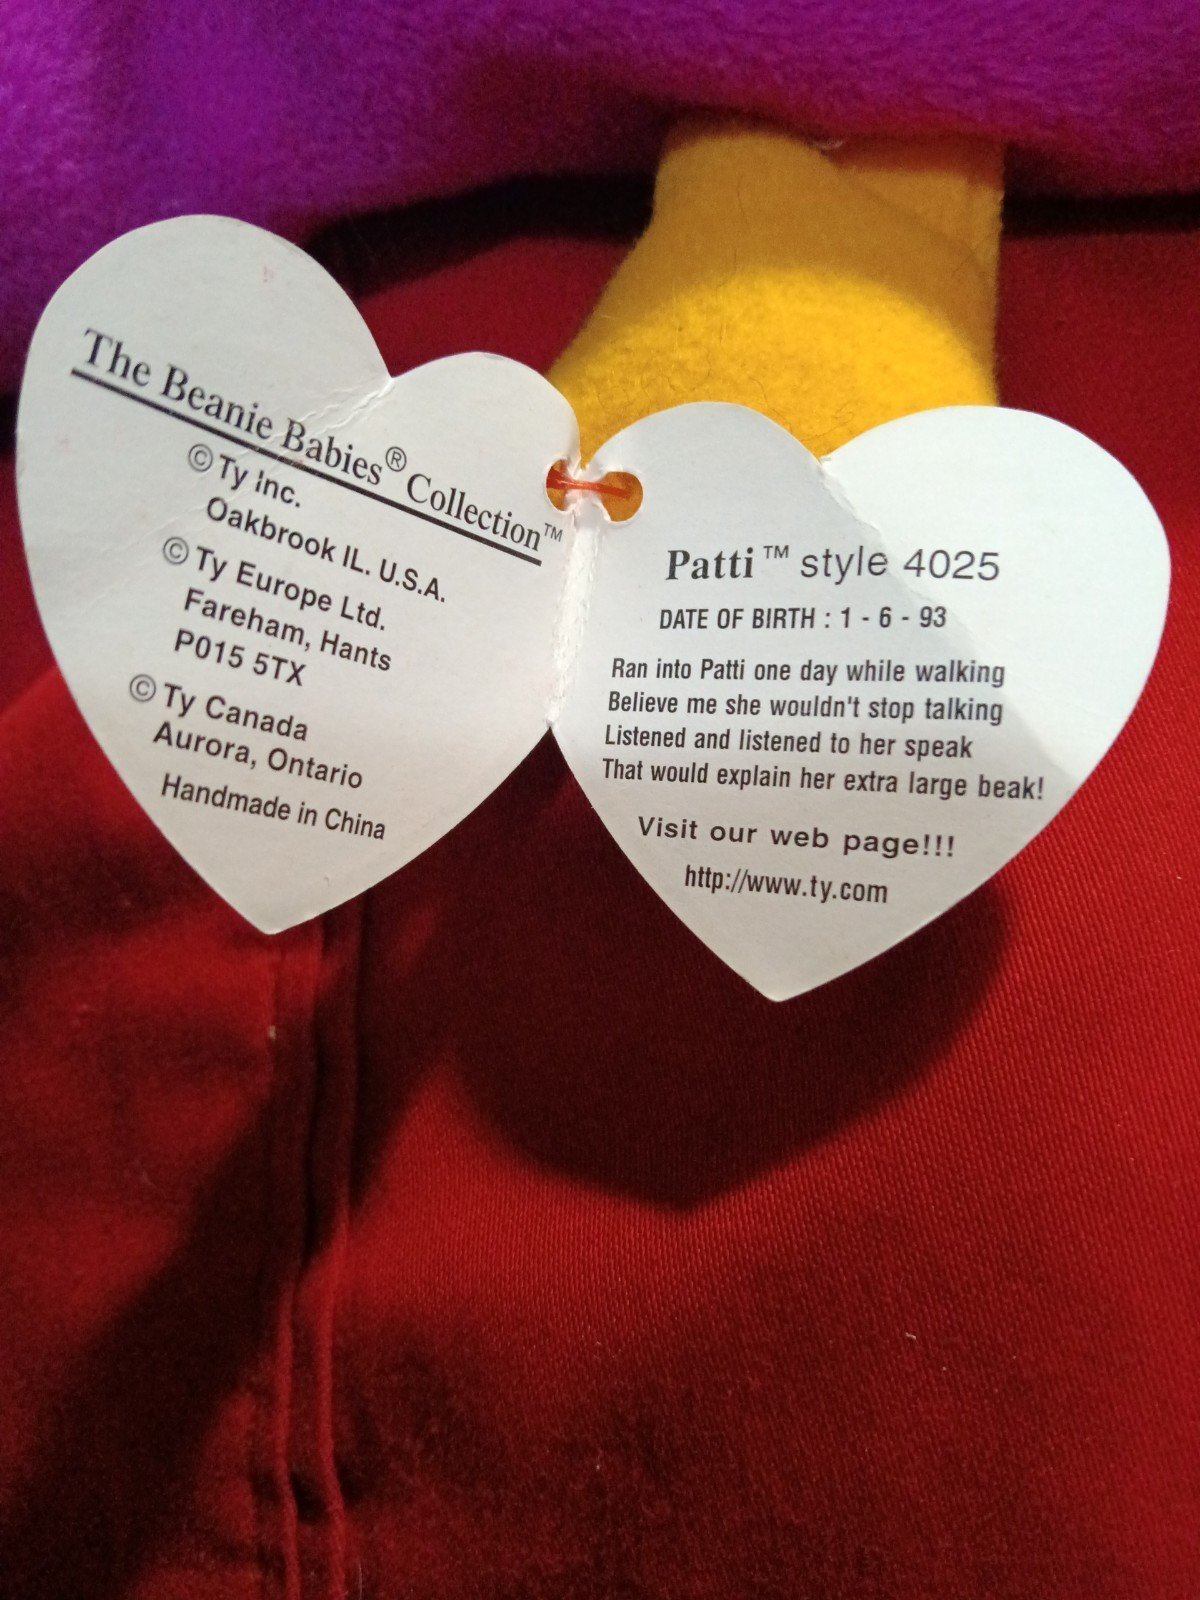 The Beanie Babies® Collection™
©Ty Inc.
Oakbrook IL. U.S.A.
©Ty Europe Ltd.
Fareham, Hants
P015 5TX
©Ty Canada
Aurora, Ontario
Handmade in China
Patti™ style 4025
DATE OF BIRTH : 1 - 6 - 93
Ran into Patti one day while walking
Believe me she wouldn't stop talking
Listened and listened to her speak
That would explain her extra large beak!
Visit our web page!!!
http://www.ty.com